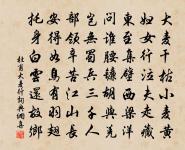 大麥干枯小麥黃
婦女行泣夫走藏
東至集壁西梁洋
問誰腰鐮胡與羌
豈無蜀兵三千人
部領辛苦江山長
安得如鳥有羽翅
托身白雲還故鄉
杜甫大麥行詞典網書